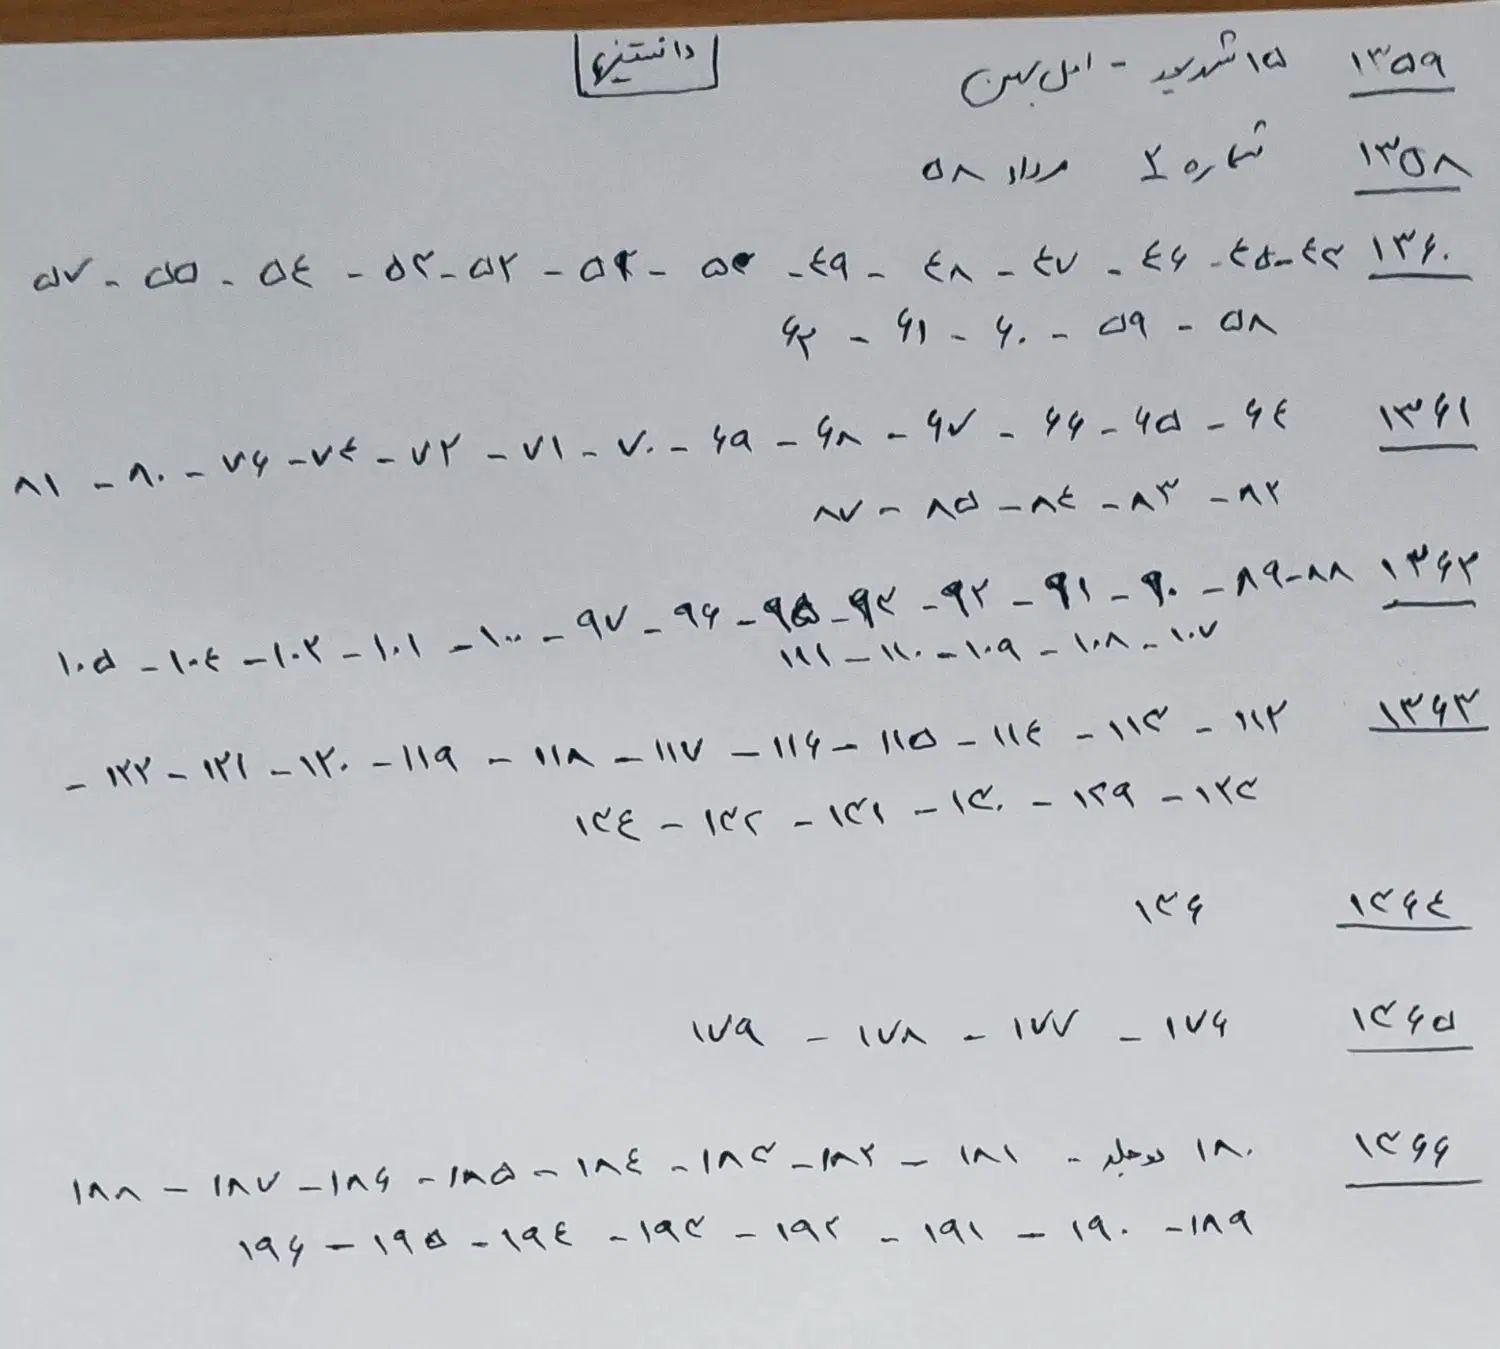 دانستنیها
۱۳۵۹ ۱۵ شهریور - اول بهمن
۱۳۵۸ شماره ۲ مرداد ۵۸
۱۳۶۰ ۴۳ - ۴۵ - ۴۶ - ۴۷ - ۴۸ - ۴۹ - ۵۰ - ۵۲ - ۵۳ - ۵۴ - ۵۵ - ۵۷
۵۸ - ۵۹ - ۶۰ - ۶۱ - ۶۲
۱۳۶۱ ۶۴ - ۶۵ - ۶۶ - ۶۷ - ۶۸ - ۶۹ - ۷۰ - ۷۱ - ۷۲ - ۷۴ - ۷۶ - ۸۰ - ۸۱
۸۲ - ۸۳ - ۸۴ - ۸۵ - ۸۷
۱۳۶۲ ۸۸ - ۸۹ - ۹۰ - ۹۱ - ۹۲ - ۹۳ - ۹۵ - ۹۶ - ۹۷ - ۱۰۰ - ۱۰۱ - ۱۰۲ - ۱۰۴ - ۱۰۵
۱۰۷ - ۱۰۸ - ۱۰۹ - ۱۱۰ - ۱۱۱
۱۳۶۳ ۱۱۲ - ۱۱۳ - ۱۱۴ - ۱۱۵ - ۱۱۶ - ۱۱۷ - ۱۱۸ - ۱۱۹ - ۱۲۰ - ۱۲۱ - ۱۲۲ -
۱۲۳ - ۱۲۹ - ۱۳۰ - ۱۳۱ - ۱۳۲ - ۱۳۴
۱۳۶۴ ۱۳۶
۱۳۶۵ ۱۷۶ - ۱۷۷ - ۱۷۸ - ۱۷۹
۱۳۶۶ ۱۸۰ دو جلد - ۱۸۱ - ۱۸۲ - ۱۸۳ - ۱۸۴ - ۱۸۵ - ۱۸۶ - ۱۸۷ - ۱۸۸
۱۸۹ - ۱۹۰ - ۱۹۱ - ۱۹۲ - ۱۹۳ - ۱۹۴ - ۱۹۵ - ۱۹۶